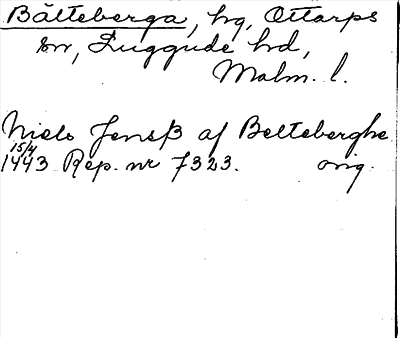 Bälteberga, hg, Ottarps
sn, Luggude hd,
Malm. l.
Niels Jensß af Belteberghe
15/4
1443 Rep. nr 7323. orig.